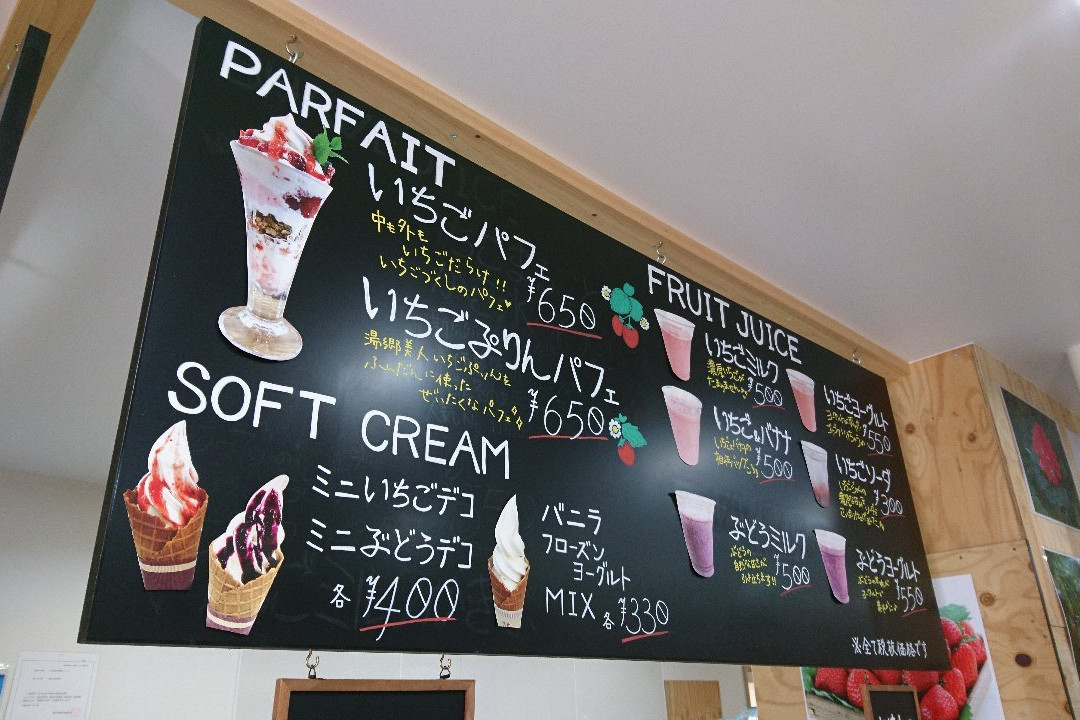 PARFAIT
いちごパフェ
中も外も
いちごだらけ!!
いちごづくしのパフェ♥
¥650
いちごぷりんパフェ
湯郷美人いちごぷりんを
ふんだんに使った
ぜいたくなパフェ
¥650
SOFT CREAM
ミニいちごデコ
ミニぶどうデコ
各 ¥400
バニラ
フローズン
ヨーグルト
MIX 各 ¥330
FRUIT JUICE
いちごミルク
濃厚いちごが
¥500
いちご&バナナ
¥500
ぶどうミルク
ぶどうの
¥500
いちごヨーグルト
¥550
いちごソーダ
¥300
ぶどうヨーグルト
¥550
※全て税抜価格です